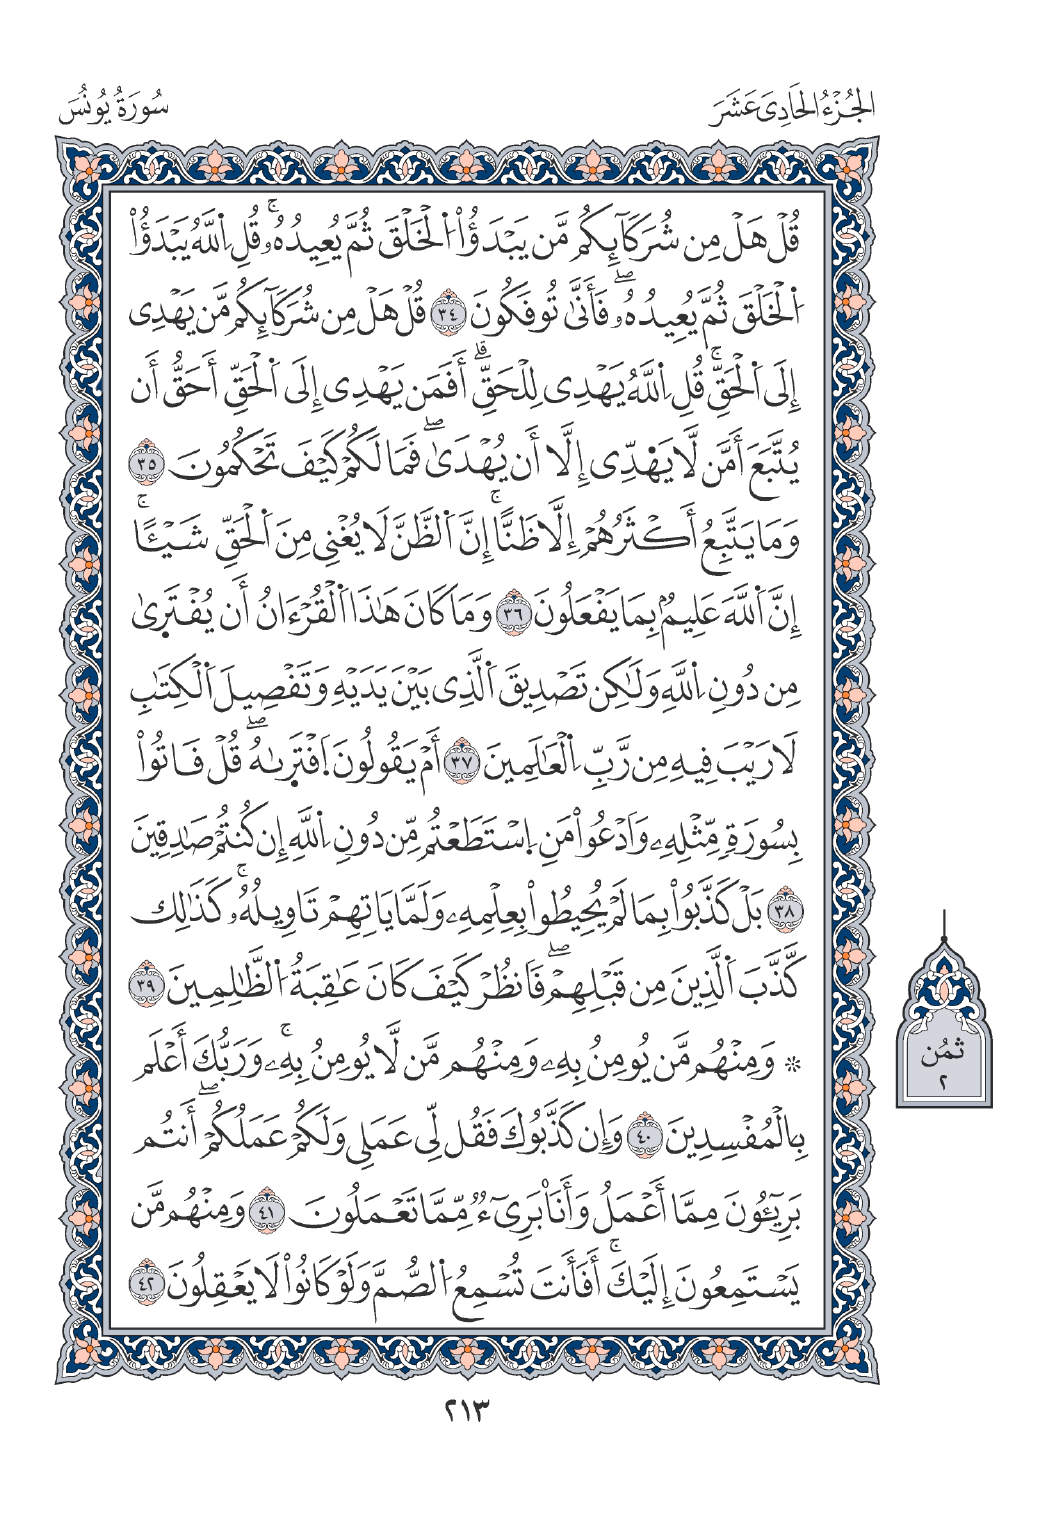 الجُزْءُ الحَادِىَ عَشَرَ
سُورَةُ يُونُسَ
قُلْ هَلْ مِن شُرَكَآئِكُم مَّن يَبْدَؤُا۟ اُ۬لْخَلْقَ ثُمَّ يُعِيدُهُۥۚ قُلِ اِ۬للَّهُ يَبْدَؤُا۟
اُ۬لْخَلْقَ ثُمَّ يُعِيدُهُۥۖ فَأَنَّىٰ تُوفَكُونَ ٣٤ قُلْ هَلْ مِن شُرَكَآئِكُم مَّن يَهْدِى
إِلَى اَ۬لْحَقِّۚ قُلِ اِ۬للَّهُ يَهْدِى لِلْحَقِّۗ أَفَمَن يَهْدِى إِلَى اَ۬لْحَقِّ أَحَقُّ أَن
يُتَّبَعَ أَمَّن لَّا يَهْدِّى إِلَّا أَن يُهْدَىٰۖ فَمَا لَكُمْ كَيْفَ تَحْكُمُونَ ٣٥
وَمَا يَتَّبِعُ أَكْثَرُهُمْ إِلَّا ظَنًّاۚ إِنَّ اَ۬لظَّنَّ لَا يُغْنِى مِنَ اَ۬لْحَقِّ شَيْـًٔاۚ
إِنَّ اَ۬للَّهَ عَلِيمٌۢ بِمَا يَفْعَلُونَ ٣٦ وَمَا كَانَ هَٰذَا اَ۬لْقُرْءَانُ أَن يُفْتَرَىٰ
مِن دُونِ اِ۬للَّهِ وَلَٰكِن تَصْدِيقَ اَ۬لَّذِى بَيْنَ يَدَيْهِ وَتَفْصِيلَ اَ۬لْكِتَٰبِ
لَا رَيْبَ فِيهِ مِن رَّبِّ اِ۬لْعَٰلَمِينَ ٣٧ أَمْ يَقُولُونَ اَ۪فْتَرَىٰهُۖ قُلْ فَاتُوا۟
بِسُورَةٍ مِّثْلِهِۦ وَادْعُوا۟ مَنِ اِ۪سْتَطَعْتُم مِّن دُونِ اِ۬للَّهِ إِن كُنتُمْ صَٰدِقِينَ
٣٨ بَلْ كَذَّبُوا۟ بِمَا لَمْ يُحِيطُوا۟ بِعِلْمِهِۦ وَلَمَّا يَاتِهِمْ تَاوِيلُهُۥۚ كَذَٰلِكَ
كَّذَّبَ اَ۬لَّذِينَ مِن قَبْلِهِمْۖ فَانظُرْ كَيْفَ كَانَ عَٰقِبَةُ اُ۬لظَّٰلِمِينَ ٣٩
۞ وَمِنْهُم مَّن يُومِنُ بِهِۦ وَمِنْهُم مَّن لَّا يُومِنُ بِهِۦۚ وَرَبُّكَ أَعْلَم
بِالْمُفْسِدِينَ ٤٠ وَإِن كَذَّبُوكَ فَقُل لِّى عَمَلِى وَلَكُمْ عَمَلُكُمْۖ أَنتُم
بَرِيٓـُٔونَ مِمَّا أَعْمَلُ وَأَنَا۠ بَرِىٓءٌ مِّمَّا تَعْمَلُونَ ٤١ وَمِنْهُم مَّن
يَسْتَمِعُونَ إِلَيْكَۚ أَفَأَنتَ تُسْمِعُ اُ۬لصُّمَّ وَلَوْ كَانُوا۟ لَا يَعْقِلُونَ ٤٢
ثمُن
٢
٢١٣